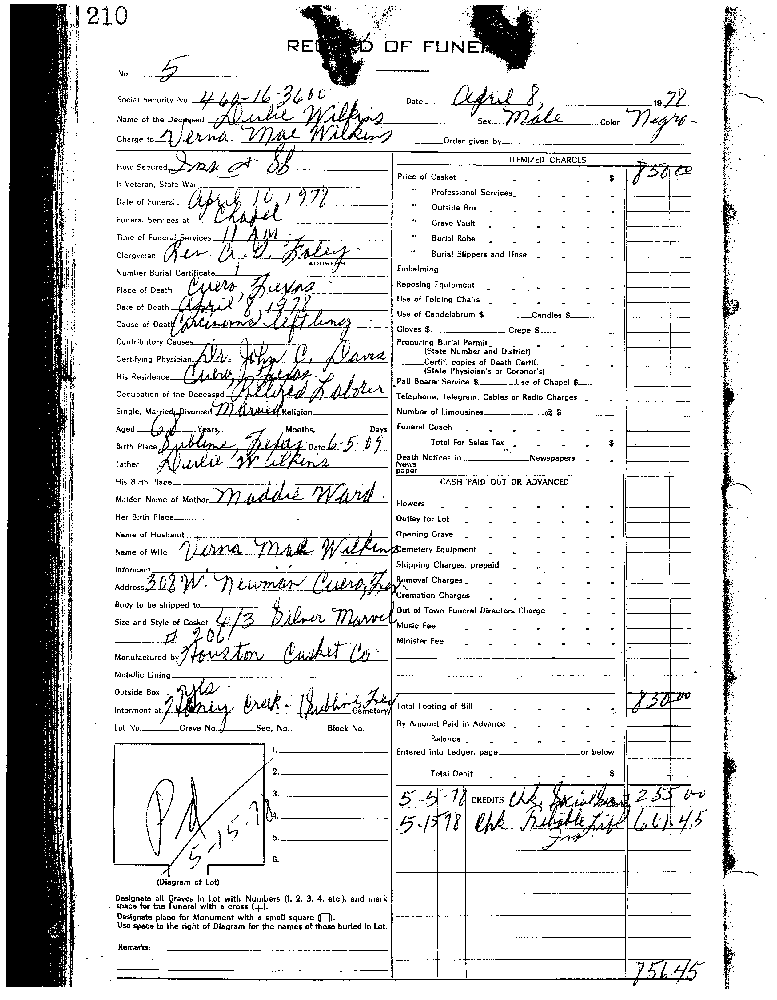 210
RECORD OF FUNERAL
No. 5
Social Security No. 460-16-3600 Date April 8, 1978
Name of the Deceased Durlie Wilkins Sex Male Color Negro
Charge to Verna Mae Wilkins Order given by
How Secured Ins & SS
Is Veteran, State War
Date of Funeral April 10, 1978
Funeral Services at Chapel
Time of Funeral Services 11 AM
Clergyman Rev.
Number Burial Certificate
Place of Death Cuero, Texas
Date of Death April 8, 1978
Cause of Death Carcinoma left lung
Contributory Causes
Certifying Physician Dr. John C. Davis
His Residence Cuero, Texas
Occupation of the Deceased Retired Laborer
Single, Married, Divorced Married Religion
Aged 68 Years, Months, Days
Birth Place Sublime, Texas Date 6-5-09
Father Durlie Wilkins
His Birth Place
Maiden Name of Mother Maddie Ward
Her Birth Place
Name of Husband
Name of Wife Verna Mae Wilkins
Informant
Address 308 W. Newman Cuero, Tex
Body to be shipped to
Size and Style of Casket 6/3 Silver Marvel
# 206
Manufactured by Houston Casket Co.
Metallic Lining
Outside Box yes
Interment at Honey Creek - Sublime Tex Cemetery
Lot No. Grave No. Sec. No. Block No.
1.
2.
3.
4.
5.
6.
Pd
5-15-78
(Diagram of Lot)
Designate all Graves in Lot with Numbers (1, 2, 3, 4, etc.), and mark
space for the Funeral with a cross (+).
Designate place for Monument with a small square (□).
Use space to the right of Diagram for the names of those buried in Lot.
Remarks:
ITEMIZED CHARGES
Price of Casket $ 850 00
" Professional Services
" Outside Box
" Grave Vault
" Burial Robe
" Burial Slippers and Hose
Embalming
Reposing Equipment
Use of Folding Chairs
Use of Candelabrum $ Candles $
Gloves $ Crepe $
Procuring Burial Permit
(State Number and District)
Certif. copies of Death Certif.
(State Physician's or Coronor's)
Pall Bearer Service $ Use of Chapel $
Telephone, Telegram, Cables or Radio Charges
Number of Limousines @ $
Funeral Coach
Total For Sales Tax $
Death Notices in Newspapers
News
paper
CASH PAID OUT OR ADVANCED
Flowers
Outlay for Lot
Opening Grave
Cemetery Equipment
Shipping Charges, prepaid
Removal Charges
Cremation Charges
Out of Town Funeral Directors Charge
Music Fee
Minister Fee
Total Footing of Bill 850 00
By Amount Paid in Advance
Balance
Entered into Ledger, page or below
Total Debit $
5-5-78 CREDITS Chk, Social 255 00
5-15-78 Chk Reliable Life 601.45
Ins
856.45